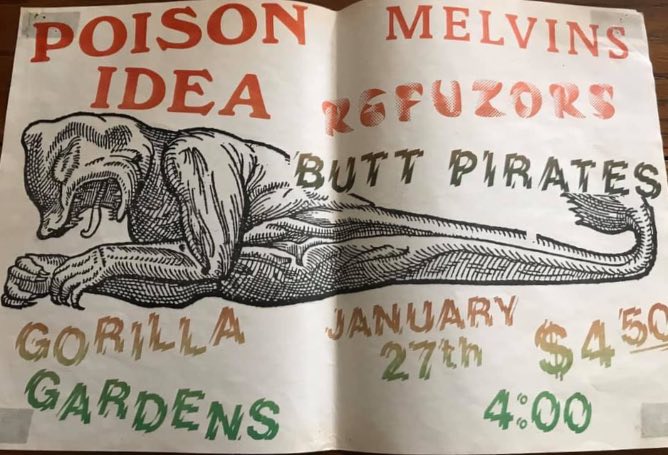 POISON
IDEA
MELVINS
REFUZORS
BUTT PIRATES
GORILLA
GARDENS
JANUARY
27th
$4.50
4:00